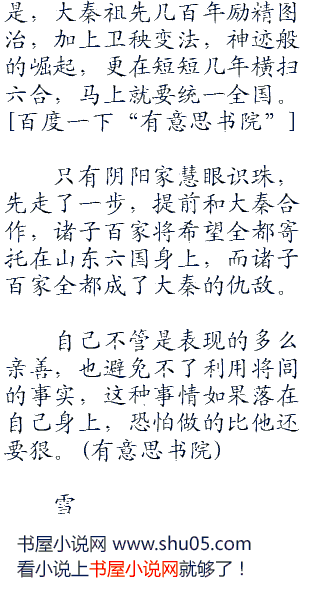 是，大秦祖先几百年励精图
治，加上卫秧变法，神迹般
的崛起，更在短短几年横扫
六合，马上就要统一全国。
[百度一下“有意思书院”]
只有阴阳家慧眼识珠，
先走了一步，提前和大秦合
作，诸子百家将希望全都寄
托在山东六国身上，而诸子
百家全都成了大秦的仇敌。
自己不管是表现的多么
亲善，也避免不了利用将闾
的事实，这种事情如果落在
自己身上，恐怕做的比他还
要狠。(有意思书院)
雪
书屋小说网 www.shu05.com
看小说上书屋小说网就够了！